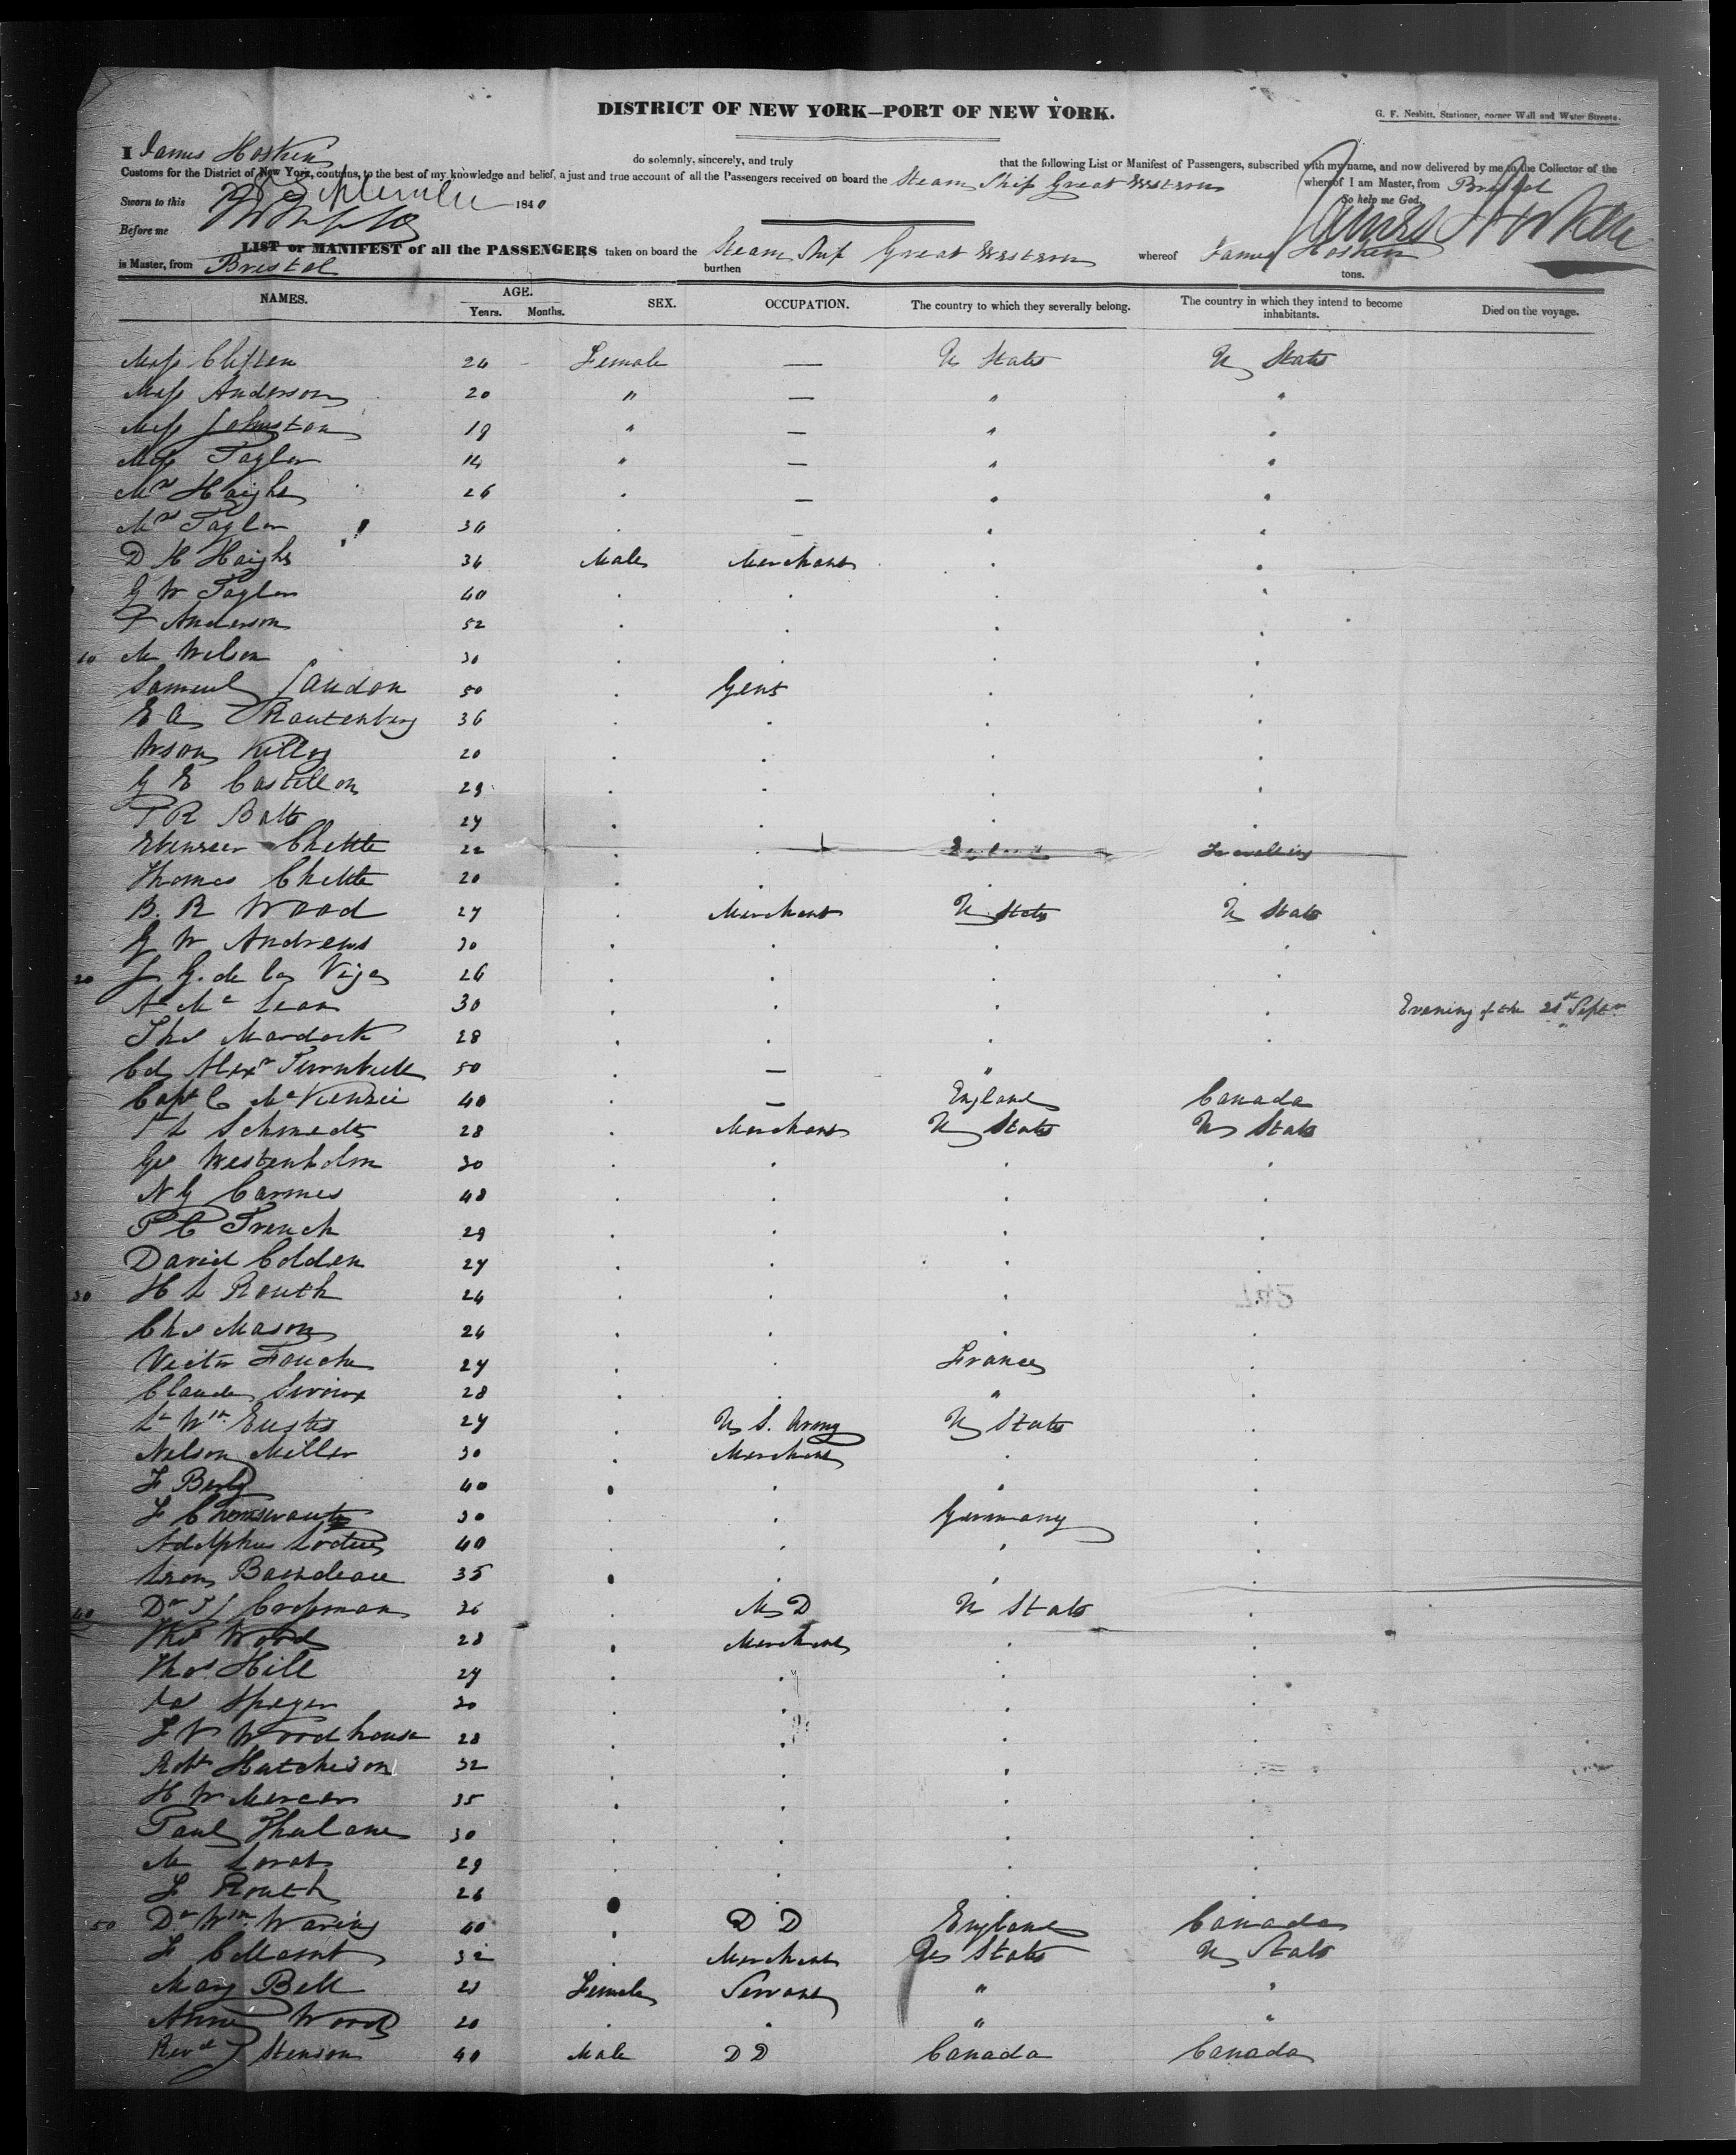 DISTRICT OF NEW YORK—PORT OF NEW YORK.
G. F. Nesbitt, Stationer, corner Wall and Water Streets.
I James Hosken do solemnly, sincerely, and truly that the following List or Manifest of Passengers, subscribed with my name, and now delivered by me to the Collector of the
Customs for the District of New York, contains, to the best of my knowledge and belief, a just and true account of all the Passengers received on board the Steam Ship Great Western whereof I am Master, from Bristol
Sworn to this September 1840 So help me God.
Before me James Hosken
LIST or MANIFEST of all the PASSENGERS taken on board the Steam Ship Great Western whereof James Hosken
is Master, from Bristol burthen tons.
NAMES. AGE. SEX. OCCUPATION. The country to which they severally belong. The country in which they intend to become inhabitants. Died on the voyage.
Years. Months.
Miss Clifton 24 Female — U States U States
Miss Anderson 20 " — " "
Miss Johnston 19 " — " "
Miss Taylor 14 " — " "
Mrs Haight 26 " — " "
Mrs Taylor 30 " — " "
D H Haight 34 Male Merchant " "
G W Taylor 40
Anderson 52
10 M Wilson 30
Samuel Landon 50 Gent
E A Rautenberg 36
20
G E Castillon 29
T R Batts 27
Ebenezer Chettle 22 England Travelling
Thomas Chettle 20
B. R Wood 27 Merchant U States U States
G W Andrews 30
20 J. G. de la Vega 26
A Mc Lean 30 Evening of the 21st Septr
Ths Mardock 28
Col Alexr Turnbull 50 — "
Capt C McKenzie 40 — England Canada
L Schmedt 28 Merchant U States U States
Geo Westenholm 30
N G Carnes 48
P C French 29
David Colden 27
30 H L Routh 24
Chs Mason 24
Victor Fouche 27 France
Claude 28 "
Lt Wm Eustis 27 U S. Army U States
Nelson Miller 30 Merchant
F 40
F 30 Germany
Adolphus 40
Leon 35
40 Dr Crossman 36 M D U States
Thos Wood 28 Merchant
Thos Hill 27
Speyer 30
F V Woodhouse 28
Robt Hutchison 32
H W Mercer 35
Paul 30
M 29
F Routh 26
50 Dr Wm Waring 40 D D England Canada
F 32 Merchant U States U States
Mary Bell 23 Female Servant " "
Anne Wood 20 " "
Revd J Stenson 40 Male D D Canada Canada